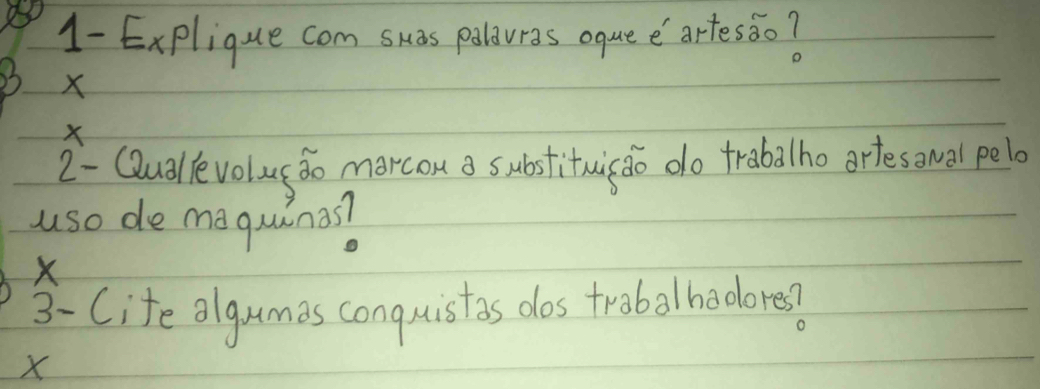 1- Explique com suas palavras oque é artesão?
x
x
2- Qual revolução marcou a substituição do trabalho artesanal pelo
uso de maquinas?
x
3- Cite algumas conquistas dos trabalhadores?
x